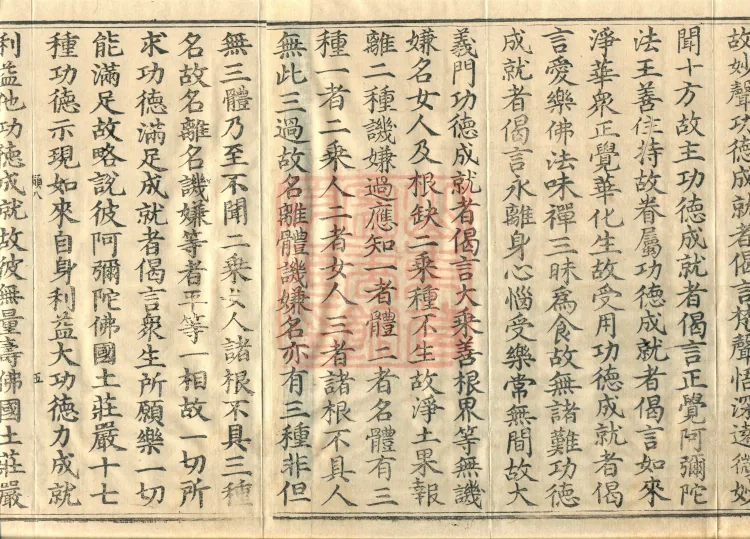 故妙聲功德成就者偈言梵聲悟深遠微妙
聞十方故主功德成就者偈言正覺阿彌陀
法王善住持故眷屬功德成就者偈言如來
淨華衆正覺華化生故受用功德成就者偈
言愛樂佛法味禪三昧為食故無諸難功德
成就者偈言永離身心惱受樂常無間故大
義門功德成就者偈言大乘善根界等無譏
嫌名女人及根缺二乘種不生故淨土果報
離二種譏嫌過應知一者體二者名體有三
種一者二乘人二者女人三者諸根不具人
無此三過故名離體譏嫌名亦有三種非但
無三體乃至不聞二乘女人諸根不具三種
名故名離名譏嫌等者平等一相故一切所
求功德滿足成就者偈言衆生所願樂一切
能滿足故略說彼阿彌陀佛國土莊嚴十七
種功德示現如來自身利益大功德力成就
利益他功德成就故彼無量壽佛國土莊嚴
五